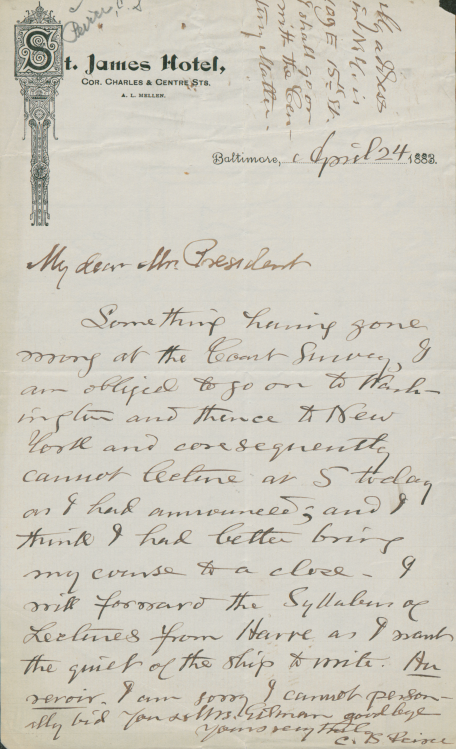 Peirce, C. S.
St. James Hotel,
COR. CHARLES & CENTRE STS.
A. L. HELLEN.
My address
in N. Y. is
109 E 15th St.
I shall go on
with the Cen-
tury Matter.
Baltimore, April 24 1883.
My dear Mr. President
Something having gone
wrong at the Coast Survey, I
am obliged to go on to Wash-
ington and thence to New
York and consequently
cannot lecture at 5 today
as I had announced; and I
think I had better bring
my course to a close. I
will forward the Syllabus of
Lectures from Havre as I want
the quiet of the ship to write. Au
revoir. I am sorry I cannot person-
ally bid you & Mrs. Gilman goodbye
Yours very truly
C. S. Peirce